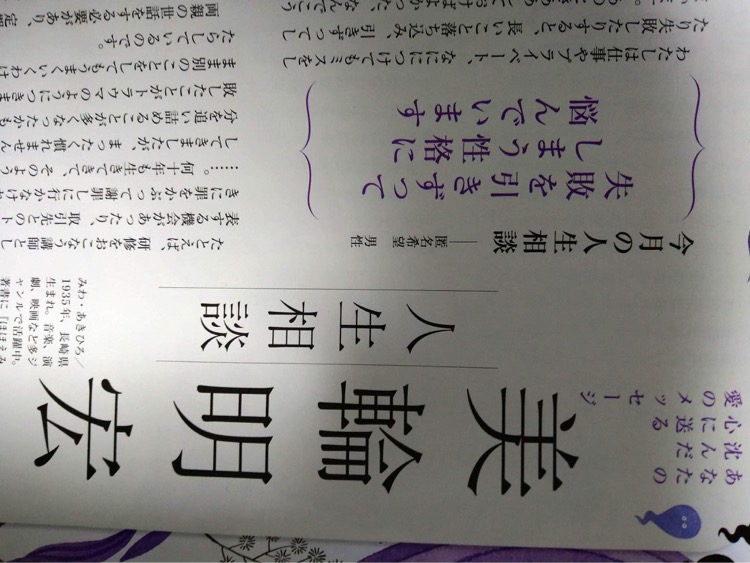 あなたの
沈んだ
心に送る
愛のメッセージ
美輪明宏
人生相談
みわ・あきひろ／
1935年、長崎県
生まれ。音楽、演
劇、映画など多ジ
ャンルで活躍中。
著書に『ほほえみ
今月の人生相談
匿名希望 男性
失敗を引きずって
しまう性格に
悩んでいます
わたしは仕事やプライベート、なににつけてもミスをし
たり失敗したりすると、長いこと落ち込み、引きずってし
たとえば、研修をおこなう講師とし
表する機会があったり、取引先とのト
きに罪をかぶって謝罪しに行かなけ
……。何十年も生きてきて、そのよう
してきましたが、まったく慣れません
分を追い詰めることが多くなったかも
敗したことがトラウマのようにつきま
ま別のことをしてもうまくいくわけ
たらしているのです。
両親の世話をする必要があり、定